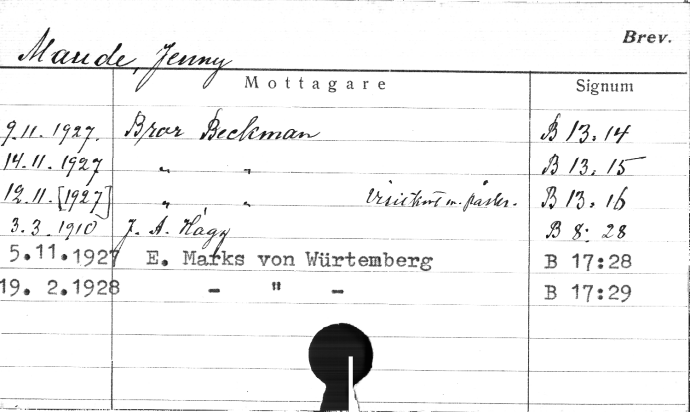 Brev.
Maude, Jenny
Mottagare Signum
9.11.1927. Bror Beckman B 13:14
14.11.1927 " " B 13:15
12.11.[1927] " " Visitkort m. påskr. B 13:16
3.3.1910 J. A. Hägg B 8:28
5.11.1927 E. Marks von Würtemberg B 17:28
19. 2.1928 - " - B 17:29